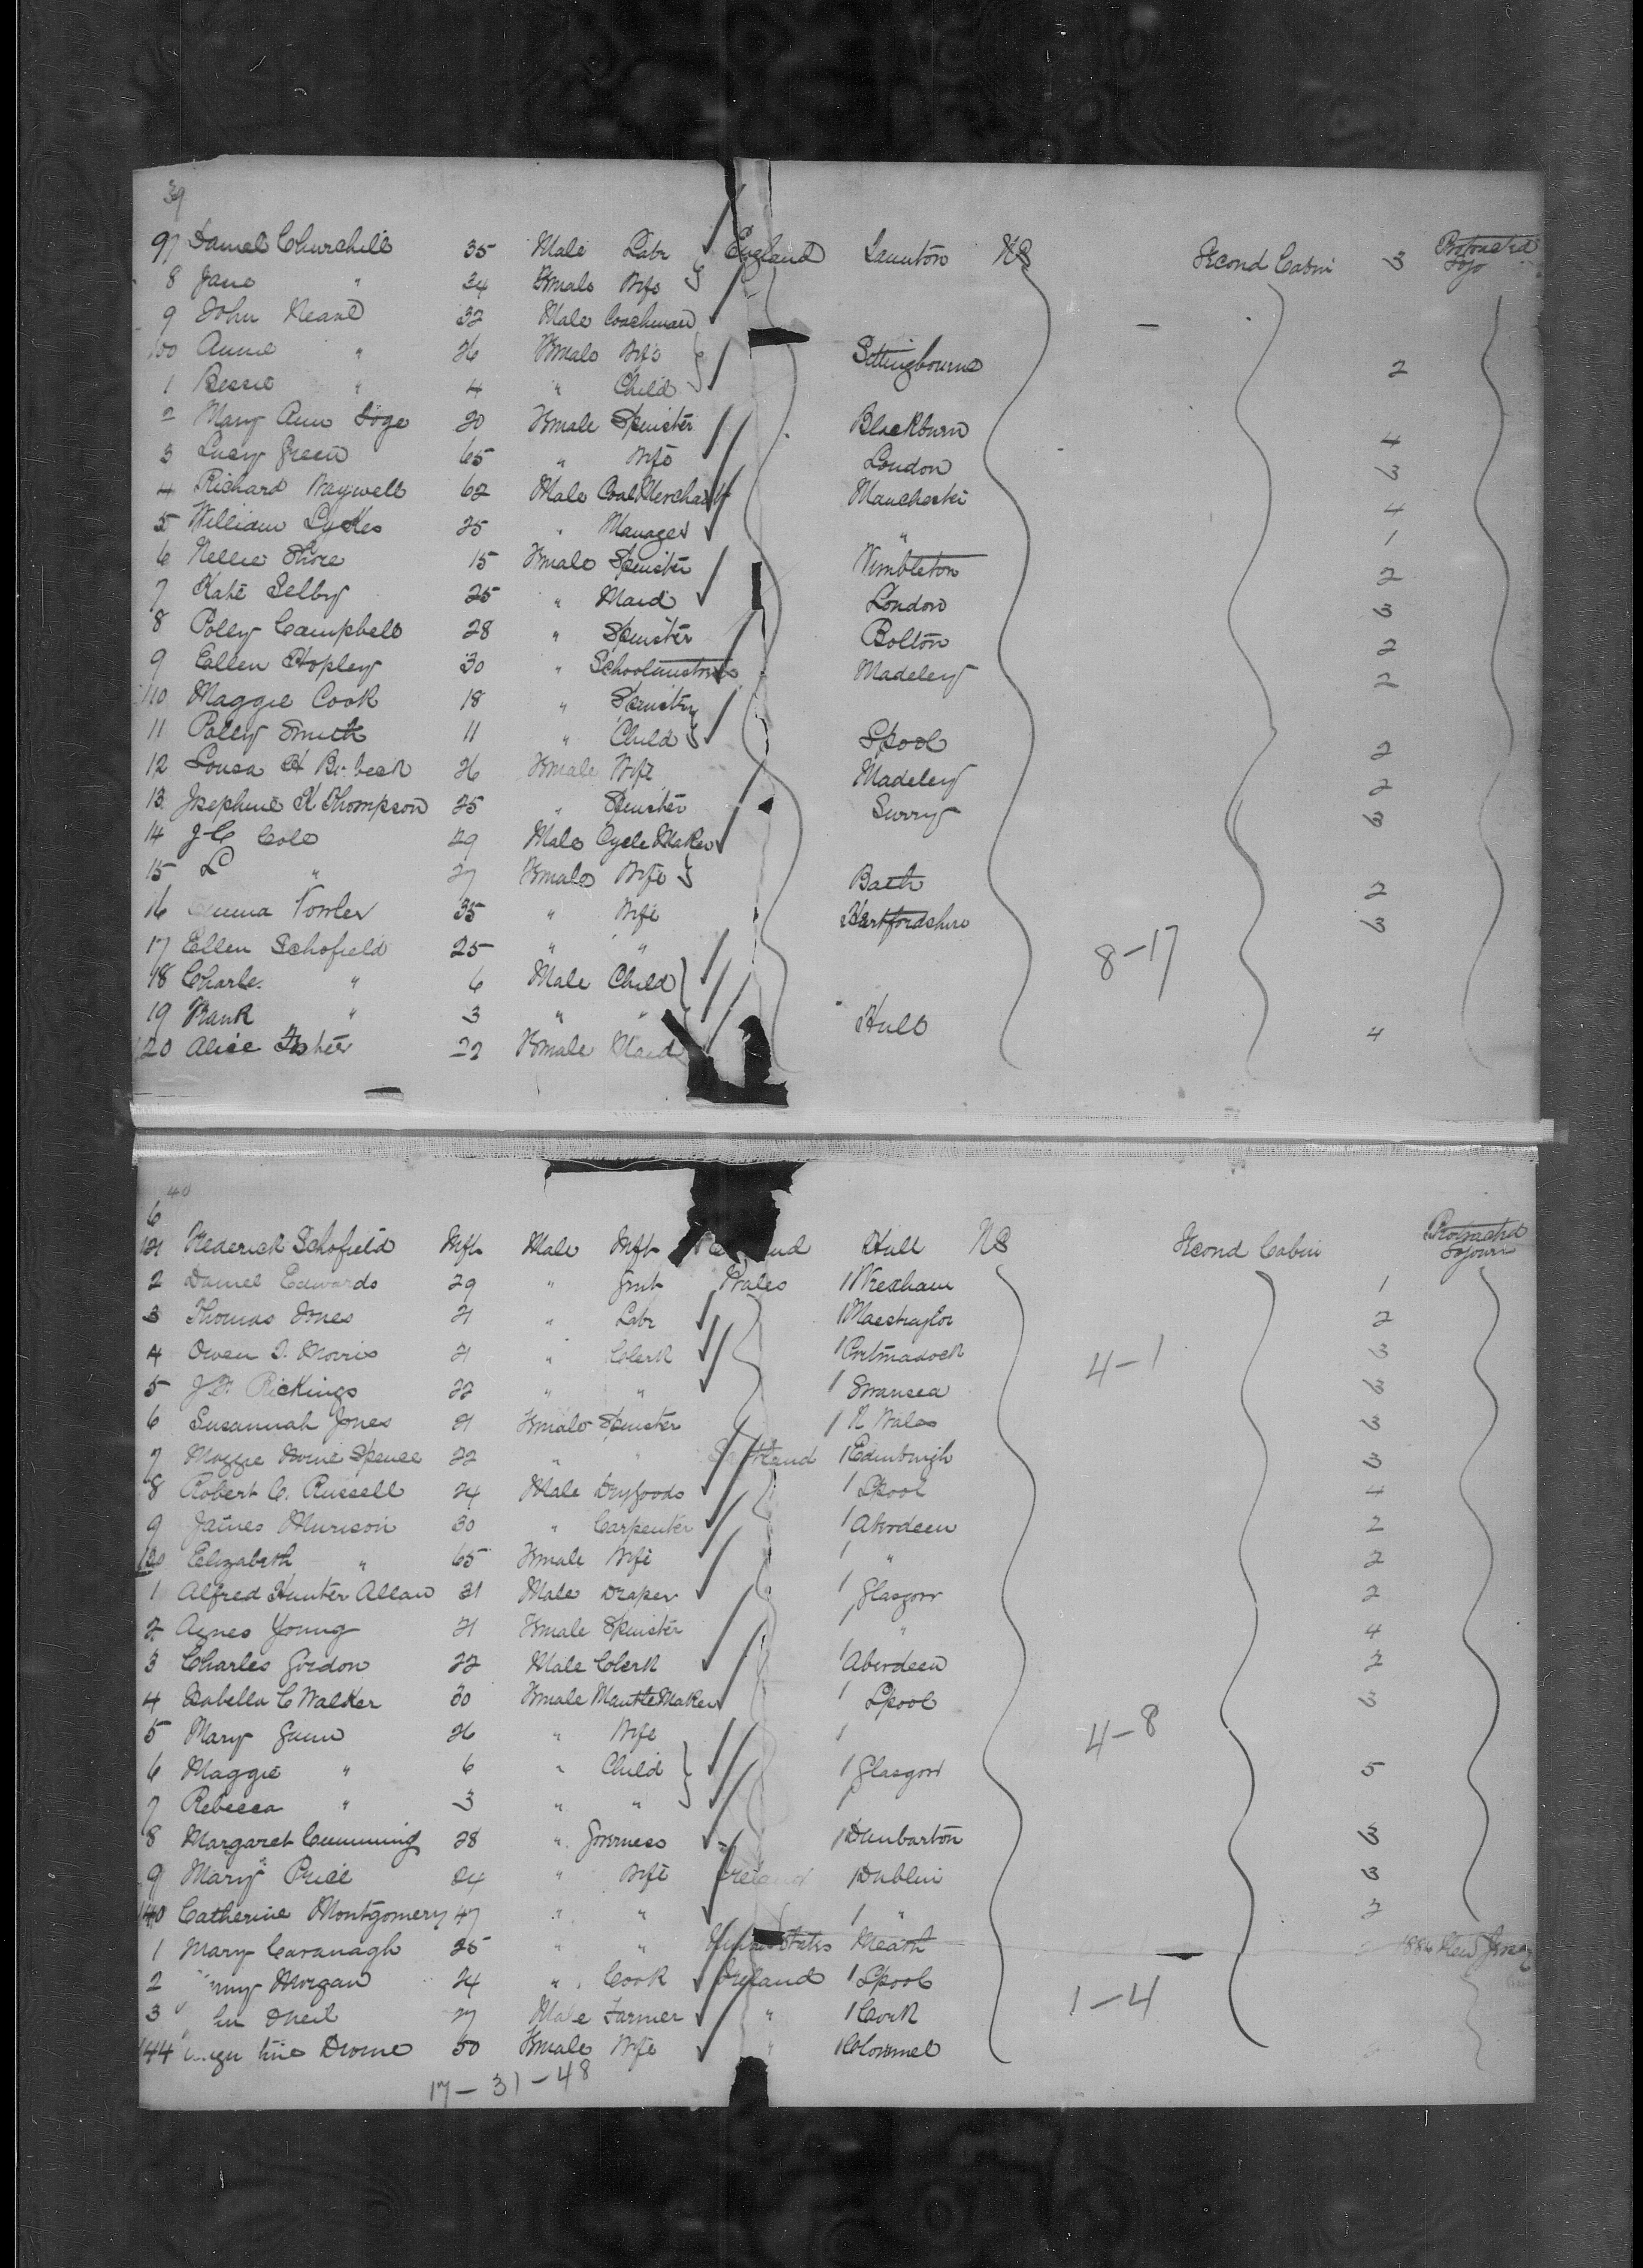 39
97 Daniel Churchill 35 Male Labr England Taunton US Second Cabin 3 Protracted Sojo
8 Jane " 34 Female Wife
9 John Neame 32 Male Coachman
100 Annie " 26 Female Wife Sittingbourne 2
1 Bessie " 4 " Child
2 Mary Ann 20 Female Spinster Blackburn 4
3 Lucy Green 65 " Wife London 3
4 Richard Waywell 62 Male Coal Merchant Manchester 4
5 William Lyckes 25 " Manager " 1
6 Nellie Shire 15 Female Spinster Wimbleton 2
7 Kate Selby 25 " Maid London 3
8 Polly Campbell 28 " Spinster Bolton 2
9 Ellen Hopley 30 " Schoolmistress Madeley 2
110 Maggie Cook 18 " Spinster
11 Polly Smith 11 " Child Lpool 2
12 Louisa H 26 Female Wife Madeley 2
13 Josephine K Thompson 25 " Spinster Surry 3
14 J C Cole 29 Male Cycle Maker
15 L " 27 Female Wife Bath 2
16 Emma Fowler 35 " Wife Hertfordshire 3
17 Ellen Schofield 25 " " 8-17
18 Charles " 6 Male Child
19 Frank " 3 " " Hull
120 Alice 22 Female Maid 4
40
6
121 Frederick Schofield Inft Male Inft Hull US Second Cabin Protracted Sojourn
2 Daniel Edwards 29 " Gent Wales 1 Wrexham 1
3 Thomas Jones 21 " Labr 1 Maestraylor 2
4 Owen D. Morris 21 " Clerk 1 Portmadock 4-1 3
5 J. D. Rickings 22 " " 1 Swansea 3
6 Susannah Jones 21 Female Spinster 1 N Wales 3
7 Maggie Spence 22 " " Scotland 1 Edinburgh 3
8 Robert C. Russell 24 Male Drygoods 1 Lpool 4
9 James Murison 30 " Carpenter 1 Aberdeen 2
130 Elizabeth " 65 Female Wife 1 " 2
1 Alfred Hunter Allan 31 Male Draper 1 Glasgow 2
2 Agnes Young 21 Female Spinster 1 " 4
3 Charles Gordon 22 Male Clerk 1 Aberdeen 2
4 Isabella C Walker 30 Female Mantle Maker 1 Lpool 3
5 Mary Gunn 26 " Wife 1 4-8
6 Maggie " 6 " Child 1 Glasgow 5
7 Rebecca " 3 " " 1
8 Margaret Cumming 28 " Governess 1 Dunbarton 3
9 Mary Price 24 " Wife Ireland 1 Dublin 3
140 Catherine Montgomery 47 " " 1 " 2
1 Mary Cavanagh 25 " " United States Meath 1886 New Jersey
2 Morgan 24 " Cook Ireland 1 Lpool
3 Neil 27 Male Farmer " 1 Cork 1-4
144 50 Female Wife " 1 Clonmel
17-31-48